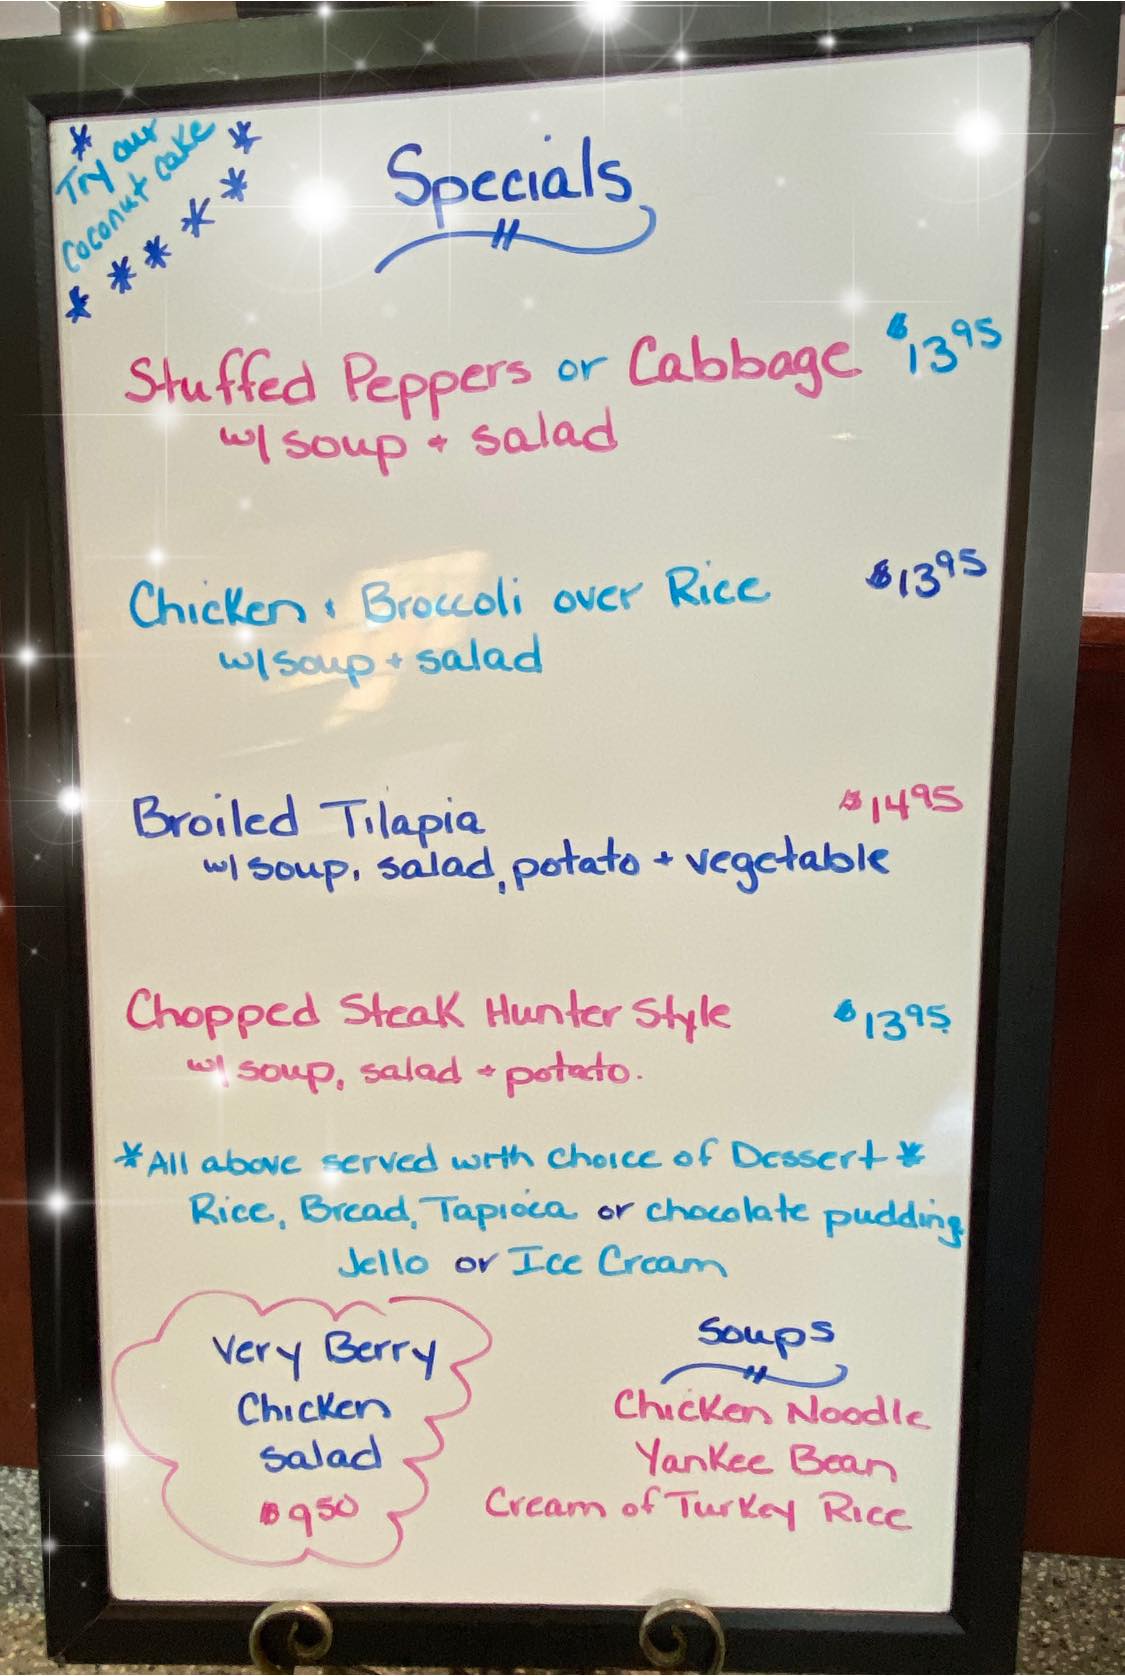 * Try our *
coconut cake
* * * * *
Specials
Stuffed Peppers or Cabbage $13.95
w/ soup + salad
Chicken & Broccoli over Rice $13.95
w/ soup + salad
Broiled Tilapia $14.95
w/ soup, salad, potato + vegetable
Chopped Steak Hunter Style $13.95
w/ soup, salad + potato.
*All above served with choice of Dessert*
Rice, Bread, Tapioca or chocolate pudding,
Jello or Ice Cream
Very Berry
Chicken
Salad
$9.50
Soups
Chicken Noodle
Yankee Bean
Cream of Turkey Rice